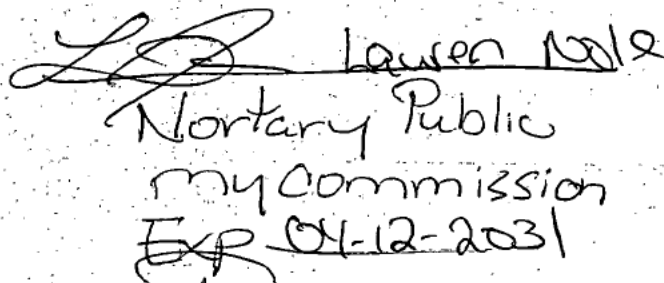 Lauren Nole
Nortary Public
my Commission
Exp 04-12-2031